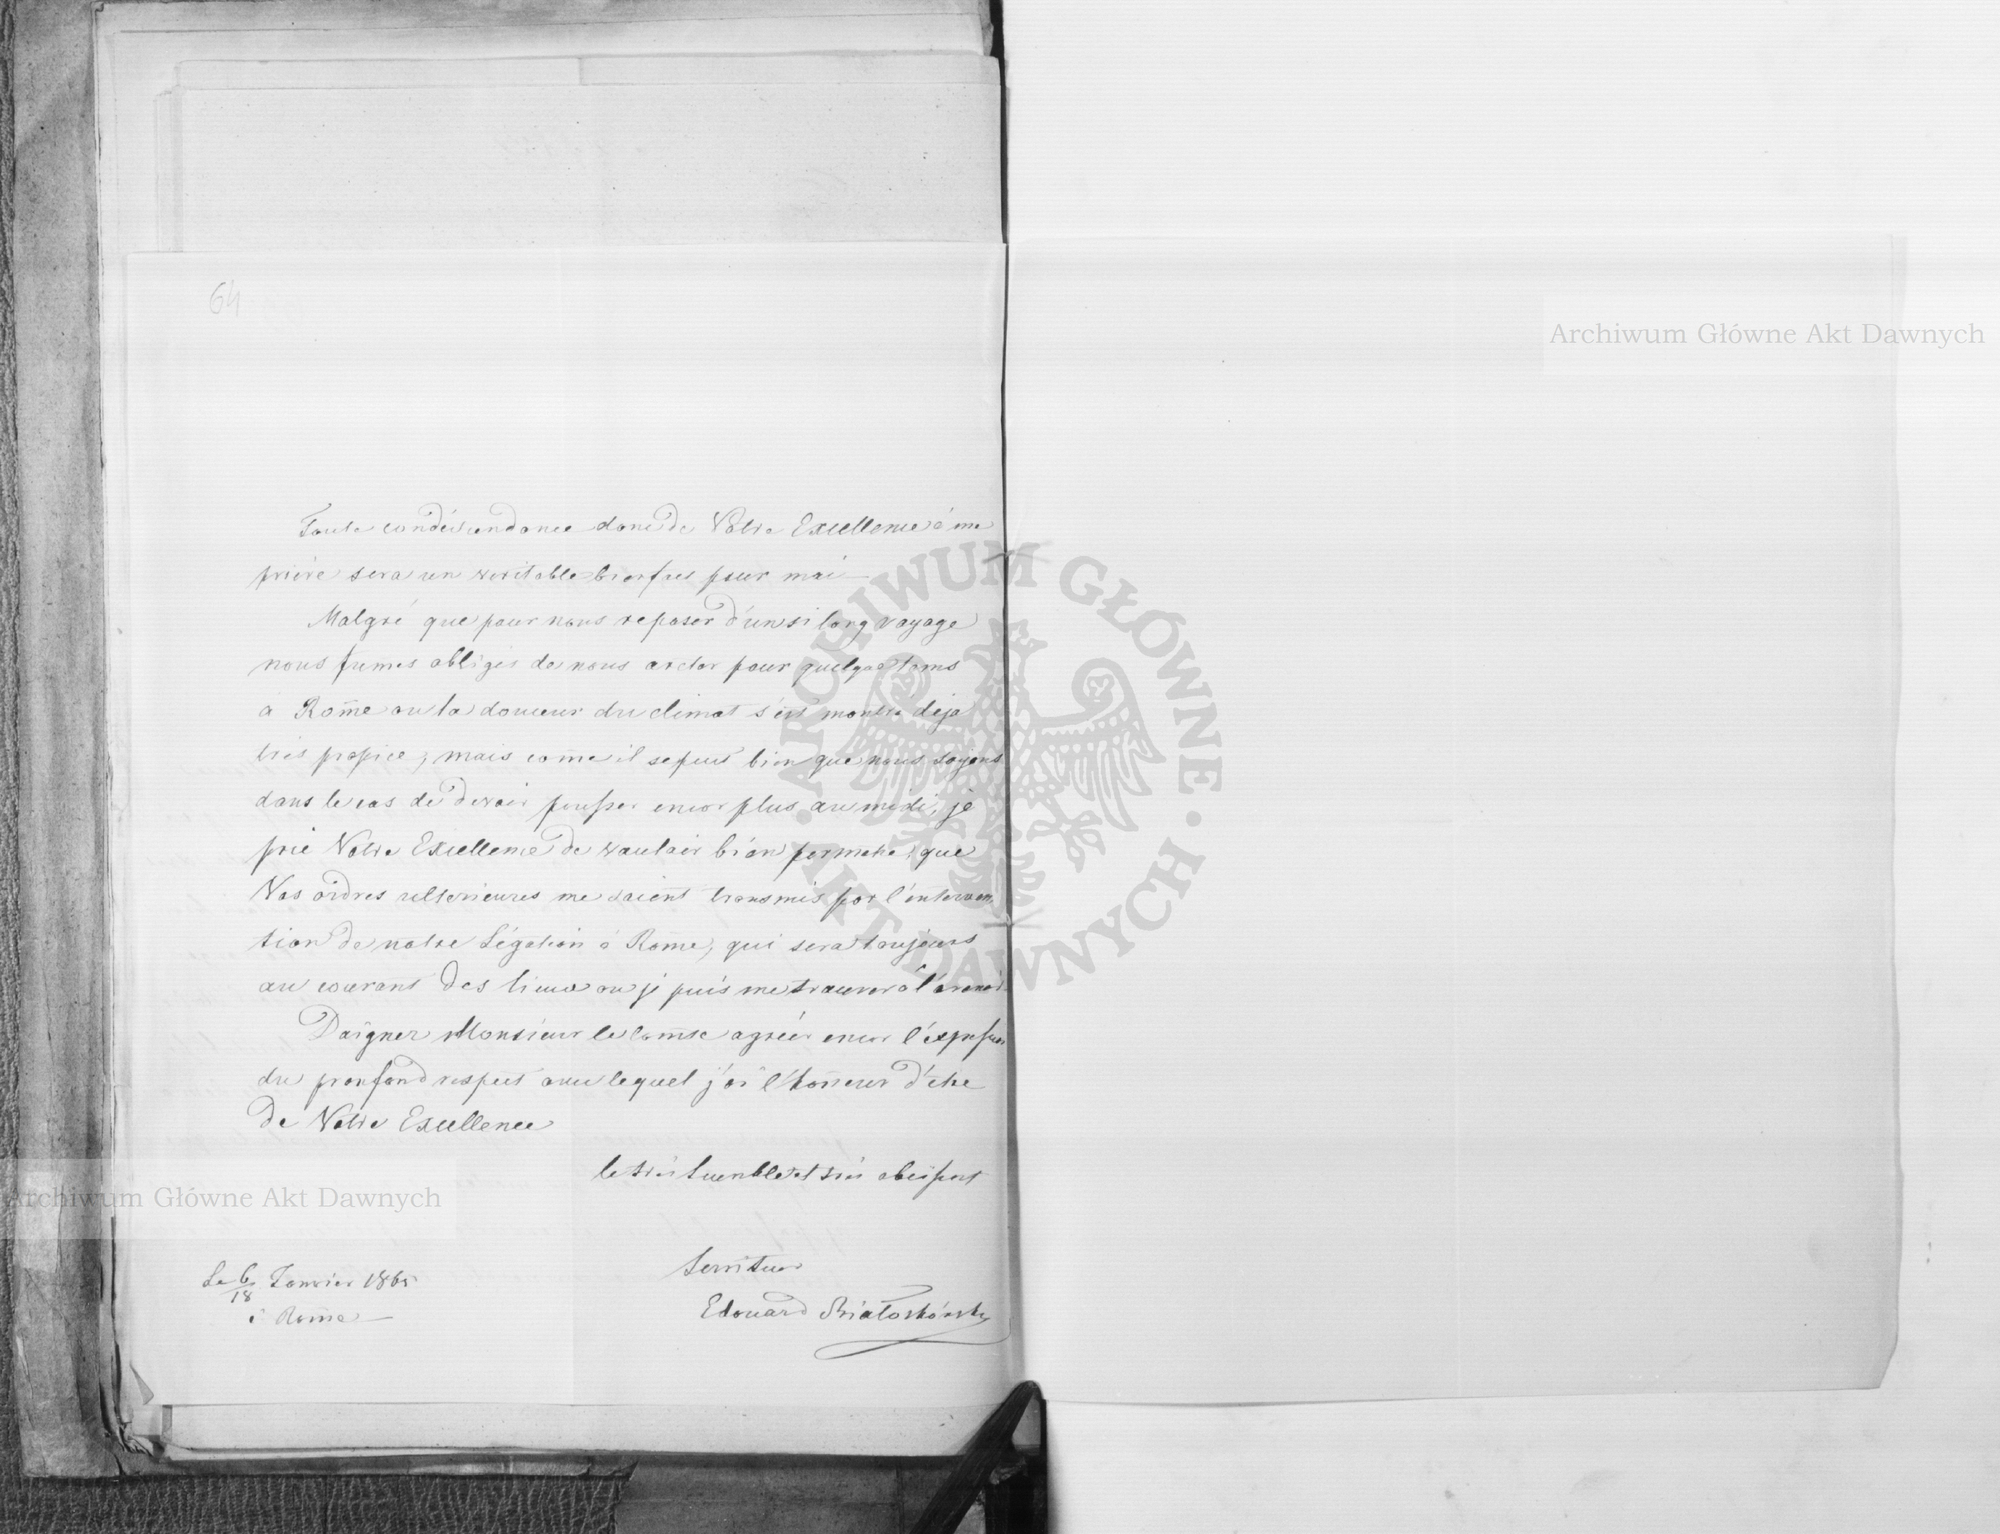 64
Toute condéscendance donc de Votre Excellence à ma
prière sera un veritable bienfait pour moi
Malgré que pour nous reposer d'un si long voyage
nous fumes obligés de nous areter pour quelque tems
à Rome ou la douceur du climat s'est montré déja
très propice, mais come il se peut bien que nous soyons
dans le cas de devoir pousser encor plus au midi, je
prie Votre Excellence de vouloir bien permetre, que
Vos ordres ulterieures me soient transmis par l'interven
tion de notre Légation à Rome, qui sera toujours
au courant des lieux ou je puis me trouver à l'avenir.
Daigner Monsieur le Comte agréer encor l'expression
du proufond respect avec lequel j'ai l'honneur d'étre
de Votre Excellence
le très humble et très obeissant
Serviteur
Edouard Białoskórski
Le 6/18 Janvier 1865
à Rome
Archiwum Główne Akt Dawnych
Archiwum Główne Akt Dawnych
ARCHIWUM GŁÓWNE · AKT DAWNYCH ·